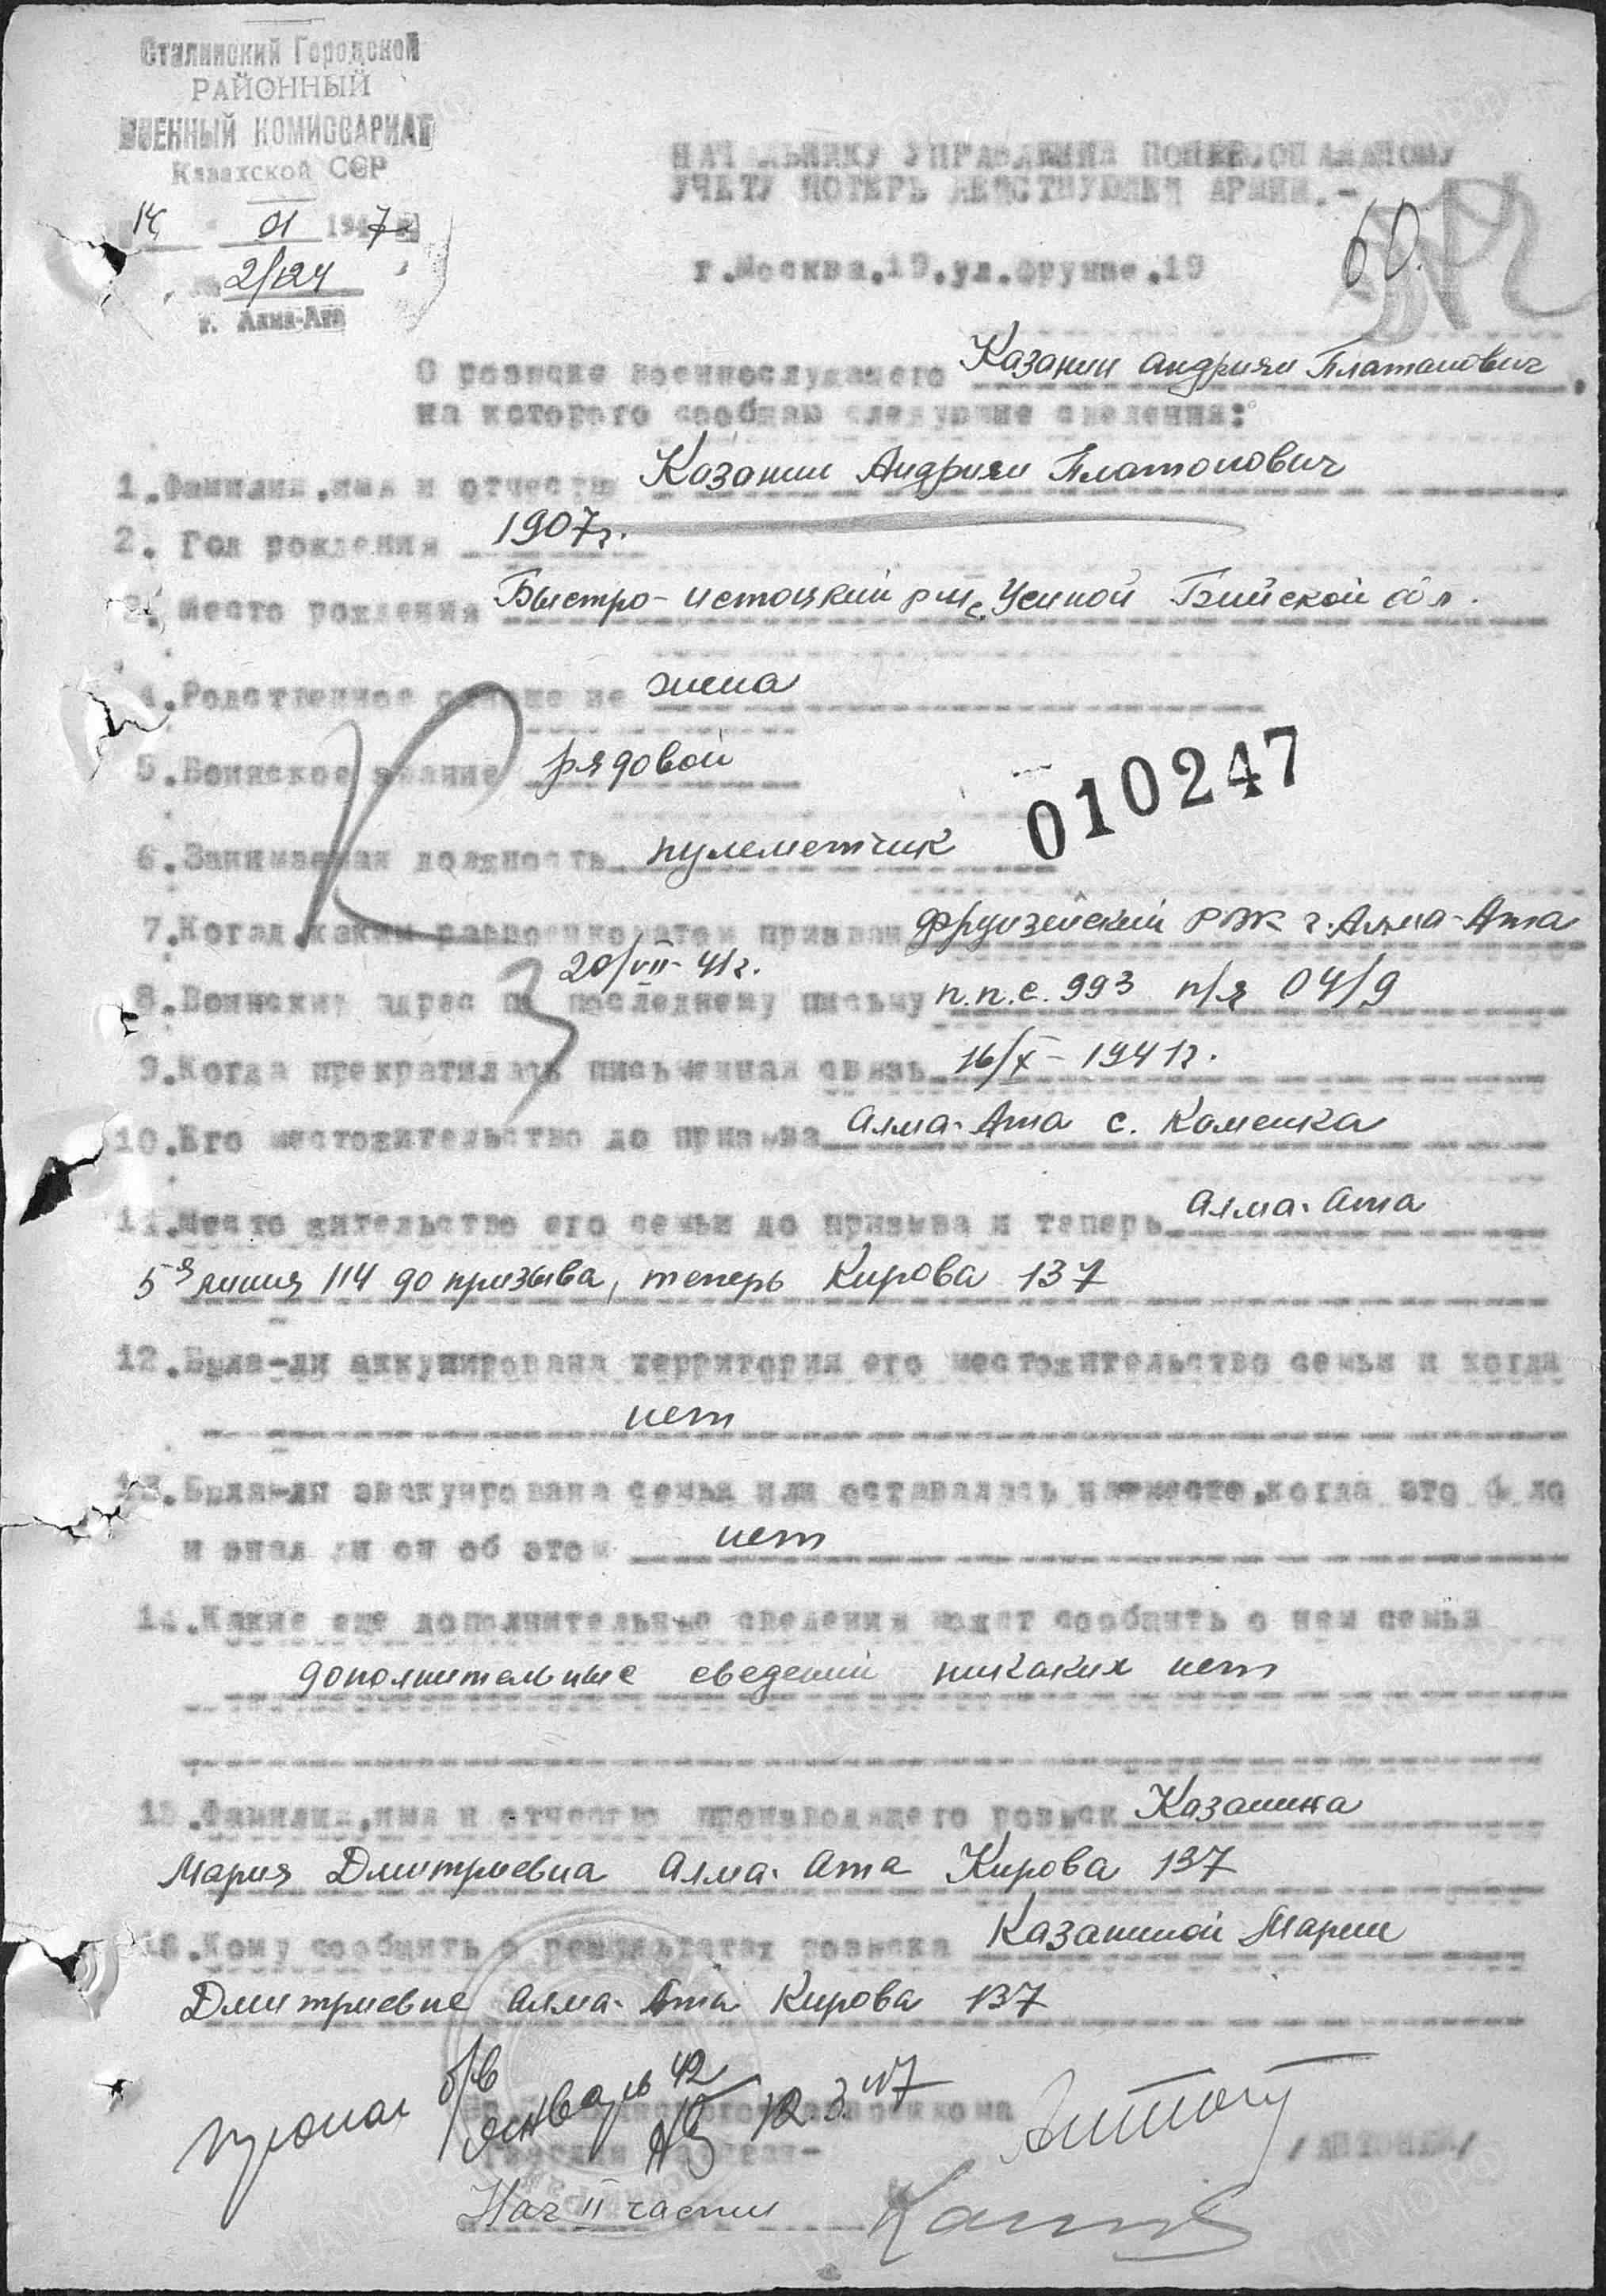 Сталинский Городской
РАЙОННЫЙ
ВОЕННЫЙ КОМИССАРИАТ
Казахской ССР
14 01 1947 г.
№ 2/124
г. Алма-Ата
НАЧАЛЬНИКУ УПРАВЛЕНИЯ ПОПЕРСОНАЛЬНОМУ
УЧЕТУ ПОТЕРЬ ДЕЙСТВУЮЩЕЙ АРМИИ.-
60.
г.Москва.19.ул.Фрунзе.19
О розыске военнослужащего Казанин Андриян Платонович,
на которого сообщаю следующие сведения:
1.Фамилия,имя и отчество Казанин Андриян Платонович
2. Год рождения 1907г.
3. Место рождения Быстро-Истокский р-н с. Усиной Бийской обл.
4.Родственное отношение жена
5.Воинское звание рядовой
010247
6.Занимаемая должность пулеметчик
7.Когда, каким райвоенкоматом призван Фрунзенский РВК г.Алма-Ата
20/VII-41г.
8.Воинский адрес по последнему письму п.п.с. 993 п/я 04/9
9.Когда прекратилась письменная связь 16/X-1941г.
10.Его местожительство до призыва Алма-Ата с. Каменка
11.Место жительство его семьи до призыва и теперь Алма-Ата
5я линия 114 до призыва, теперь Кирова 137
12.Была-ли аккупирована территория его местожительство семьи и когда
нет
13.Была-ли эвакуирована семья или оставалась на месте,когда это было
и знал ли он об этом нет
14.Какие еще дополнительные сведения может сообщить о нем семья
дополнительные сведений никаких нет
15.Фамилия,имя и отчество производящего розыск Казанина
Мария Дмитриевна Алма-Ата Кирова 137
16.Кому сообщить о результатах розыска Казаниной Марии
Дмитриевне Алма-Ата Кирова 137
пропал б/в
январь 42
12.3.47
/АНТОНЕЦ/
Нач II части